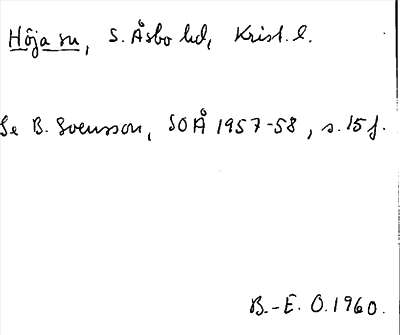 Höja sn, S. Åsbo hd, Krist. l.
Se B. Svensson, SOÅ 1957-58, s. 15 f.
B.-E. O. 1960.